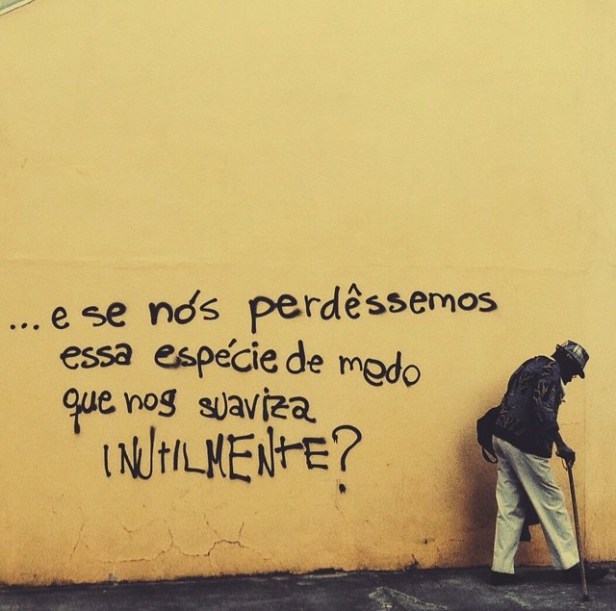 ... e se nós perdêssemos
essa espécie de medo
que nos suaviza
INUtILMENtE?